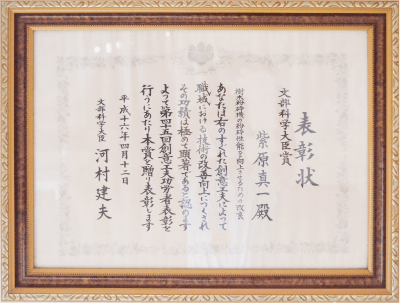 表彰状
文部科学大臣賞
紫原真一殿
樹木粉砕機の粉砕性能を向上させるための改良
あなたは右のすぐれた創意工夫によって
職域における技術の改善向上につくされ
その功績は極めて顕著であると認めます
よって第四五回創意工夫功労者表彰を
行うにあたり本賞を贈り表彰します
平成十六年四月十二日
文部科学大臣
河村建夫